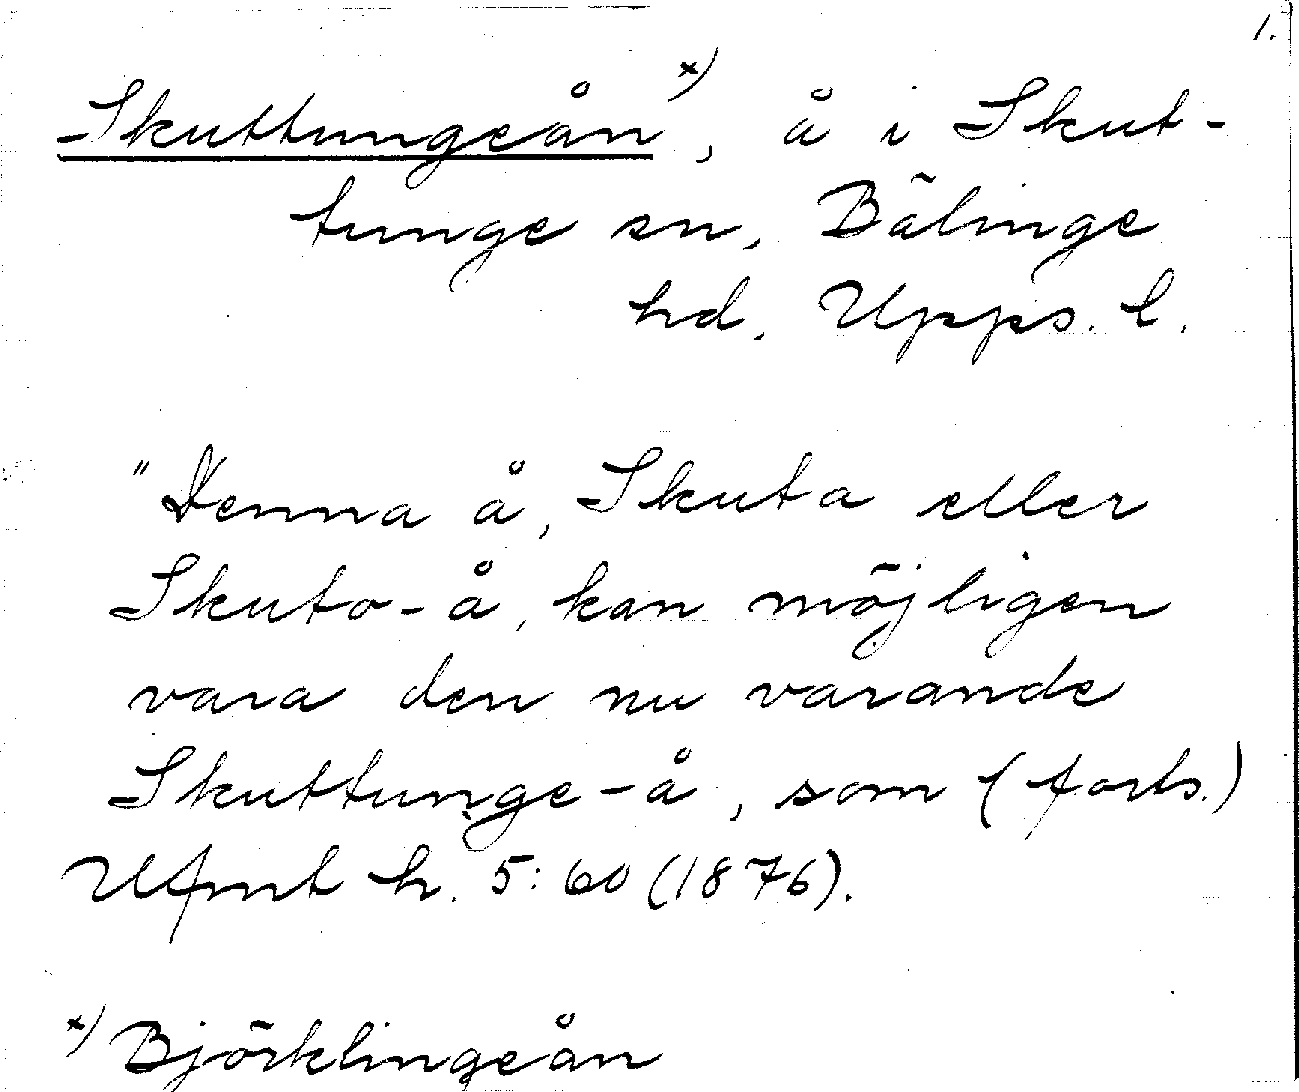 1.
Skuttungeån x), å i Skut-
tunge sn, Bälinge
hd, Upps. l.
"Denna å, Skuta eller
Skuto-å, kan möjligen
vara den nu varande
Skuttunge-å, som (forts.)
Ufmt h. 5:60 (1876).
x) Björklingeån